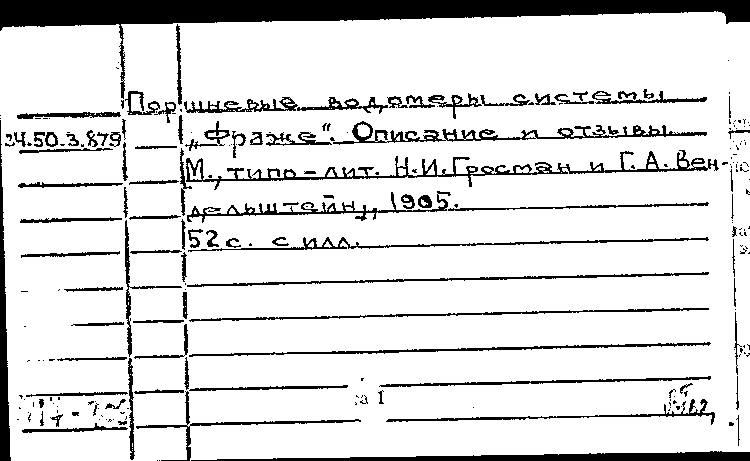 Поршневые водомеры системы
24.50.3.879 „Фраже“. Описание и отзывы.
М., типо-лит. Н.И.Гросман и Г.А.Вен-
дельштейн, 1905.
52с. с илл.